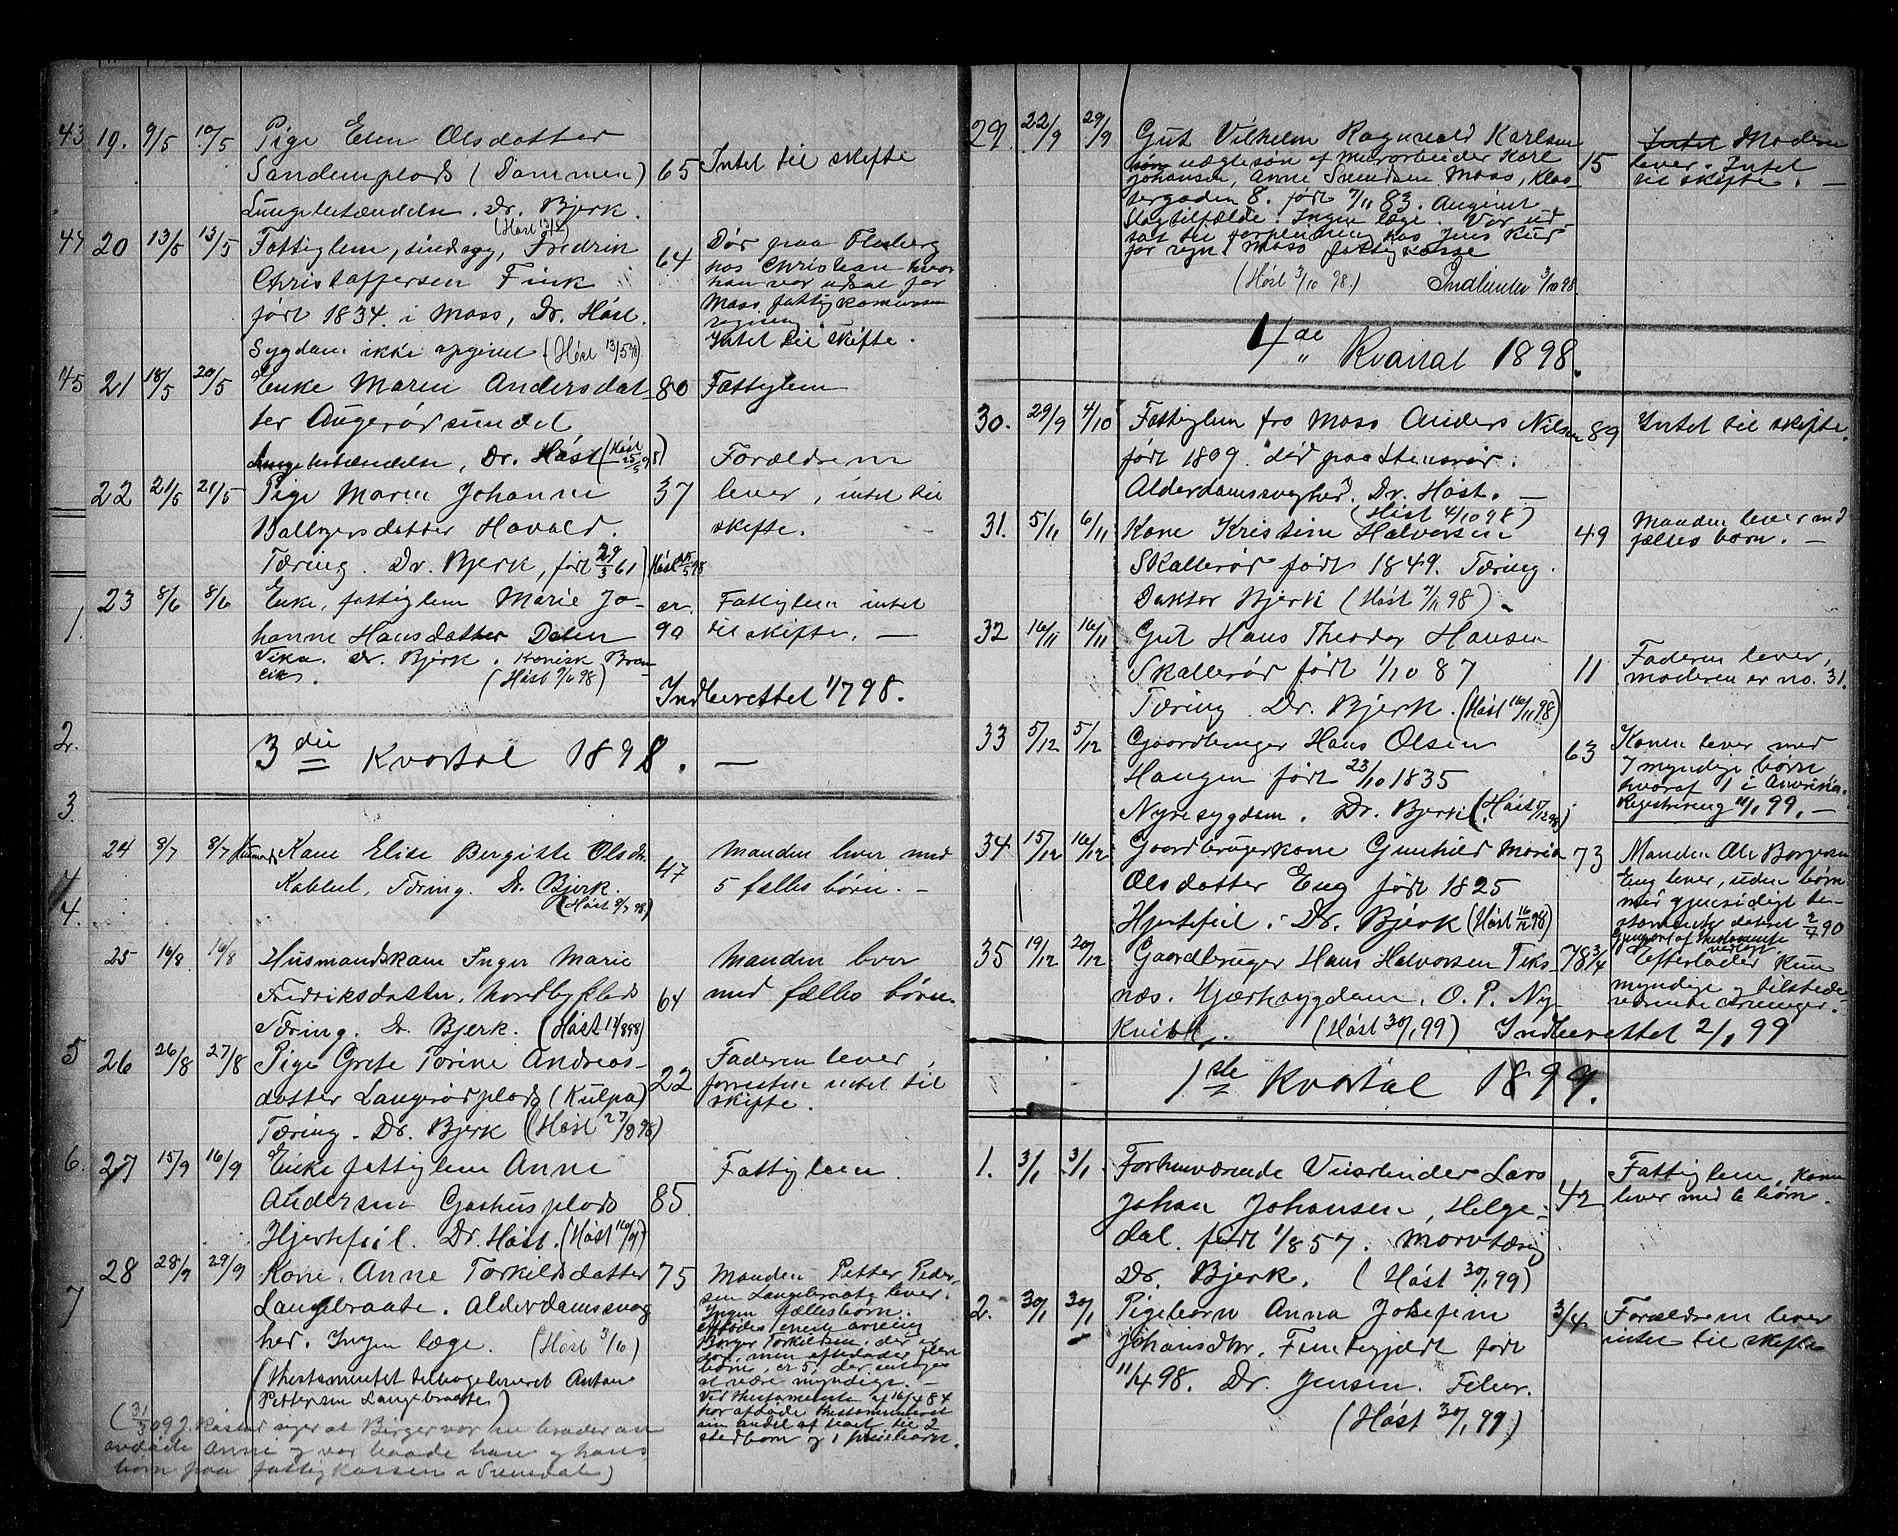 43 19. 9/5 10/5 Pige Elen Olsdatter
Sandemplads (Dammen) 65 Intet til skifte
Lungebetændelse. Dr. Bjerk.
(Høst 13/5)
44 20 13/5 13/5 Fattiglem, sindssyg, Fredrik 64 Dør paa Flesberg
Christoffersen Fink hos Christian hvor
født 1834 i Moss, Dr. Høst. han var udsat for
Sygdom ikke opgivet (Høst 13/5 98) Moss fattigkommunes
regning
Intet til skifte.
45 21 18/5 20/5 Enke Maren Andersdat- 80 Fattiglem
ter Angerørsundet
Lungebetændelse, Dr. Høst (Høst 25/5 98)
22 21/5 21/5 Pige Maren Johanne 37 Forældrene
Halvorsdatter Havald. lever, intet til
Tæring. Dr. Bjerk, født 29/3 61 skifte.
(Høst 25/5 98
1. 23 8/6 8/6 Enke, fattiglem Marie Jo- ca. Fattiglem intet
hanne Hansdatter Dalen 90 til skifte. —
Vika. Dr. Bjerk. Kronisk Bron-
(Høst 9/6 98)
Indberettet 1/7 98.
2. 3die Kvartal 1898. —
3.
24 8/7 8/7 Kone Elise Bergitte Olsdtr. 47 Manden lever med
Kabbel, Tæring. Dr. Bjerk. 5 fælles børn. —
(Høst 9/7 98)
4
4.
25 16/8 16/8 Husmandskone Inger Marie 64 Manden lever
Fredriksdatter, Nordbyplads med fælles børn.
Tæring. Dr. Bjerk. (Høst 17/8 98)
5 26 26/8 27/8 Pige Grete Torine Andreas- 22 Faderen lever,
datter Langerødplads (Kulpa) forresten intet til
Tæring. Dr. Bjerk (Høst 27/8 98) skifte.
6. 27 15/9 16/9 Enke fattiglem Anne 85 Fattiglem
Andersen Gashusplads
Hjertefeil. Dr. Høst. (Høst 16/9)
7 28 28/9 29/9 Kone Anne Torkildsdatter 75 Manden Petter Peder-
Langebraate. Alderdomssvag- sen Langebraate lever.
hed. Ingen læge. (Høst 3/10) Ingen fællesbørn.
(Thestamentet tilbageleveret Anton afdødes eneste arving
Pettersen Langebraate) Borger Torkildsen, der er
død, men efterlader flere
børn, ca 5, der antages
at være myndige. —
Ved thestamente af 16/4 84
har afdøde thestamenteret
sin andel af boet til 2
stedbørn og 1 pleiebarn.
(31/5 09 siger at Birger var en broder av
avdøde Anne og var baade han og hans
børn paa fattigkassen i Svendal)
29. 22/9 29/9 Gut Vilhelm Ragnvald Karlsen 15 Intet Moderen
søn uægte søn af murarbeider Karl lever. Intet
Johansen, Anne Svendsen Moss, Klos- til skifte. —
tergaden 8. født 7/11 83. Angivet
Slagtilfælde. Ingen læge. Var ud-
sat til forpleining hos Jens Kur
for regn. Moss fattigkasse
(Høst 3/10 98.) Indberettet 3/10 98.
4de Kvartal 1898.
30. 29/9 4/10 Fattiglem fra Moss Anders Nilsen 89 Intet til skifte.
født 1809. død paa Stensrør.
Alderdomssvaghed. Dr. Høst. —
(Høst 4/10 98)
31. 5/11 6/11 Kone Kristine Halvorsen 49 Manden lever med
Skallerød født 1849. Tæring. fælles børn. —
Doktor Bjerk (Høst 7/11 98).
32 16/11 16/11 Gut Hans Theodor Hansen 11 Faderen lever,
Skallerød født 1/10 87 moderen er no. 31.
Tæring. Dr. Bjerk. (Høst 16/11 98)
33 5/12 5/12 Gaardbruger Hans Olsen 63 Konen lever med
Haugen født 23/10 1835 7 myndige børn
Nyresygdom. Dr. Bjerk (Høst 5/12 98) hvoraf 1 i Amerika.
Registrering 11/1 99. —
34. 15/12 16/12 Gaardbrugerkone Gunhild Maria 73 Manden Ole Borgersen
Olsdatter Eng født 1825 Eng lever, uden børn
Hjertefeil. Dr. Bjerk (Høst 16/12 98) med gjensidigt te-
stamente dateret 2/4 90
Gjenpart af thestamente
vedlagt
35 19/12 20/12 Gaardbruger Hans Halvorsen Teks- 78 3/4 efterlader kun
næs. Hjertesygdom. O. P. Ny- myndige og tilstede-
kvible. (Høst 30/1 99) værende arvinger.
Indberettet 2/1 99
1ste Kvartal 1899.
1. 3/1 3/1 Forhenværende Veiarbeider Lars 42 Fattiglem, Kone
Johan Johansen, Helge- lever med 6 børn.
dal. født 1/8 57. Marvtæring
Dr. Bjerk. (Høst 30/1 99)
2. 30/1 30/1 Pigebarn Anna Josefine 3/4 Forældrene lever
Johansdtr. født intet til skifte
11/4 98. Dr. Jensen. Feber.
(Høst 30/1 99)